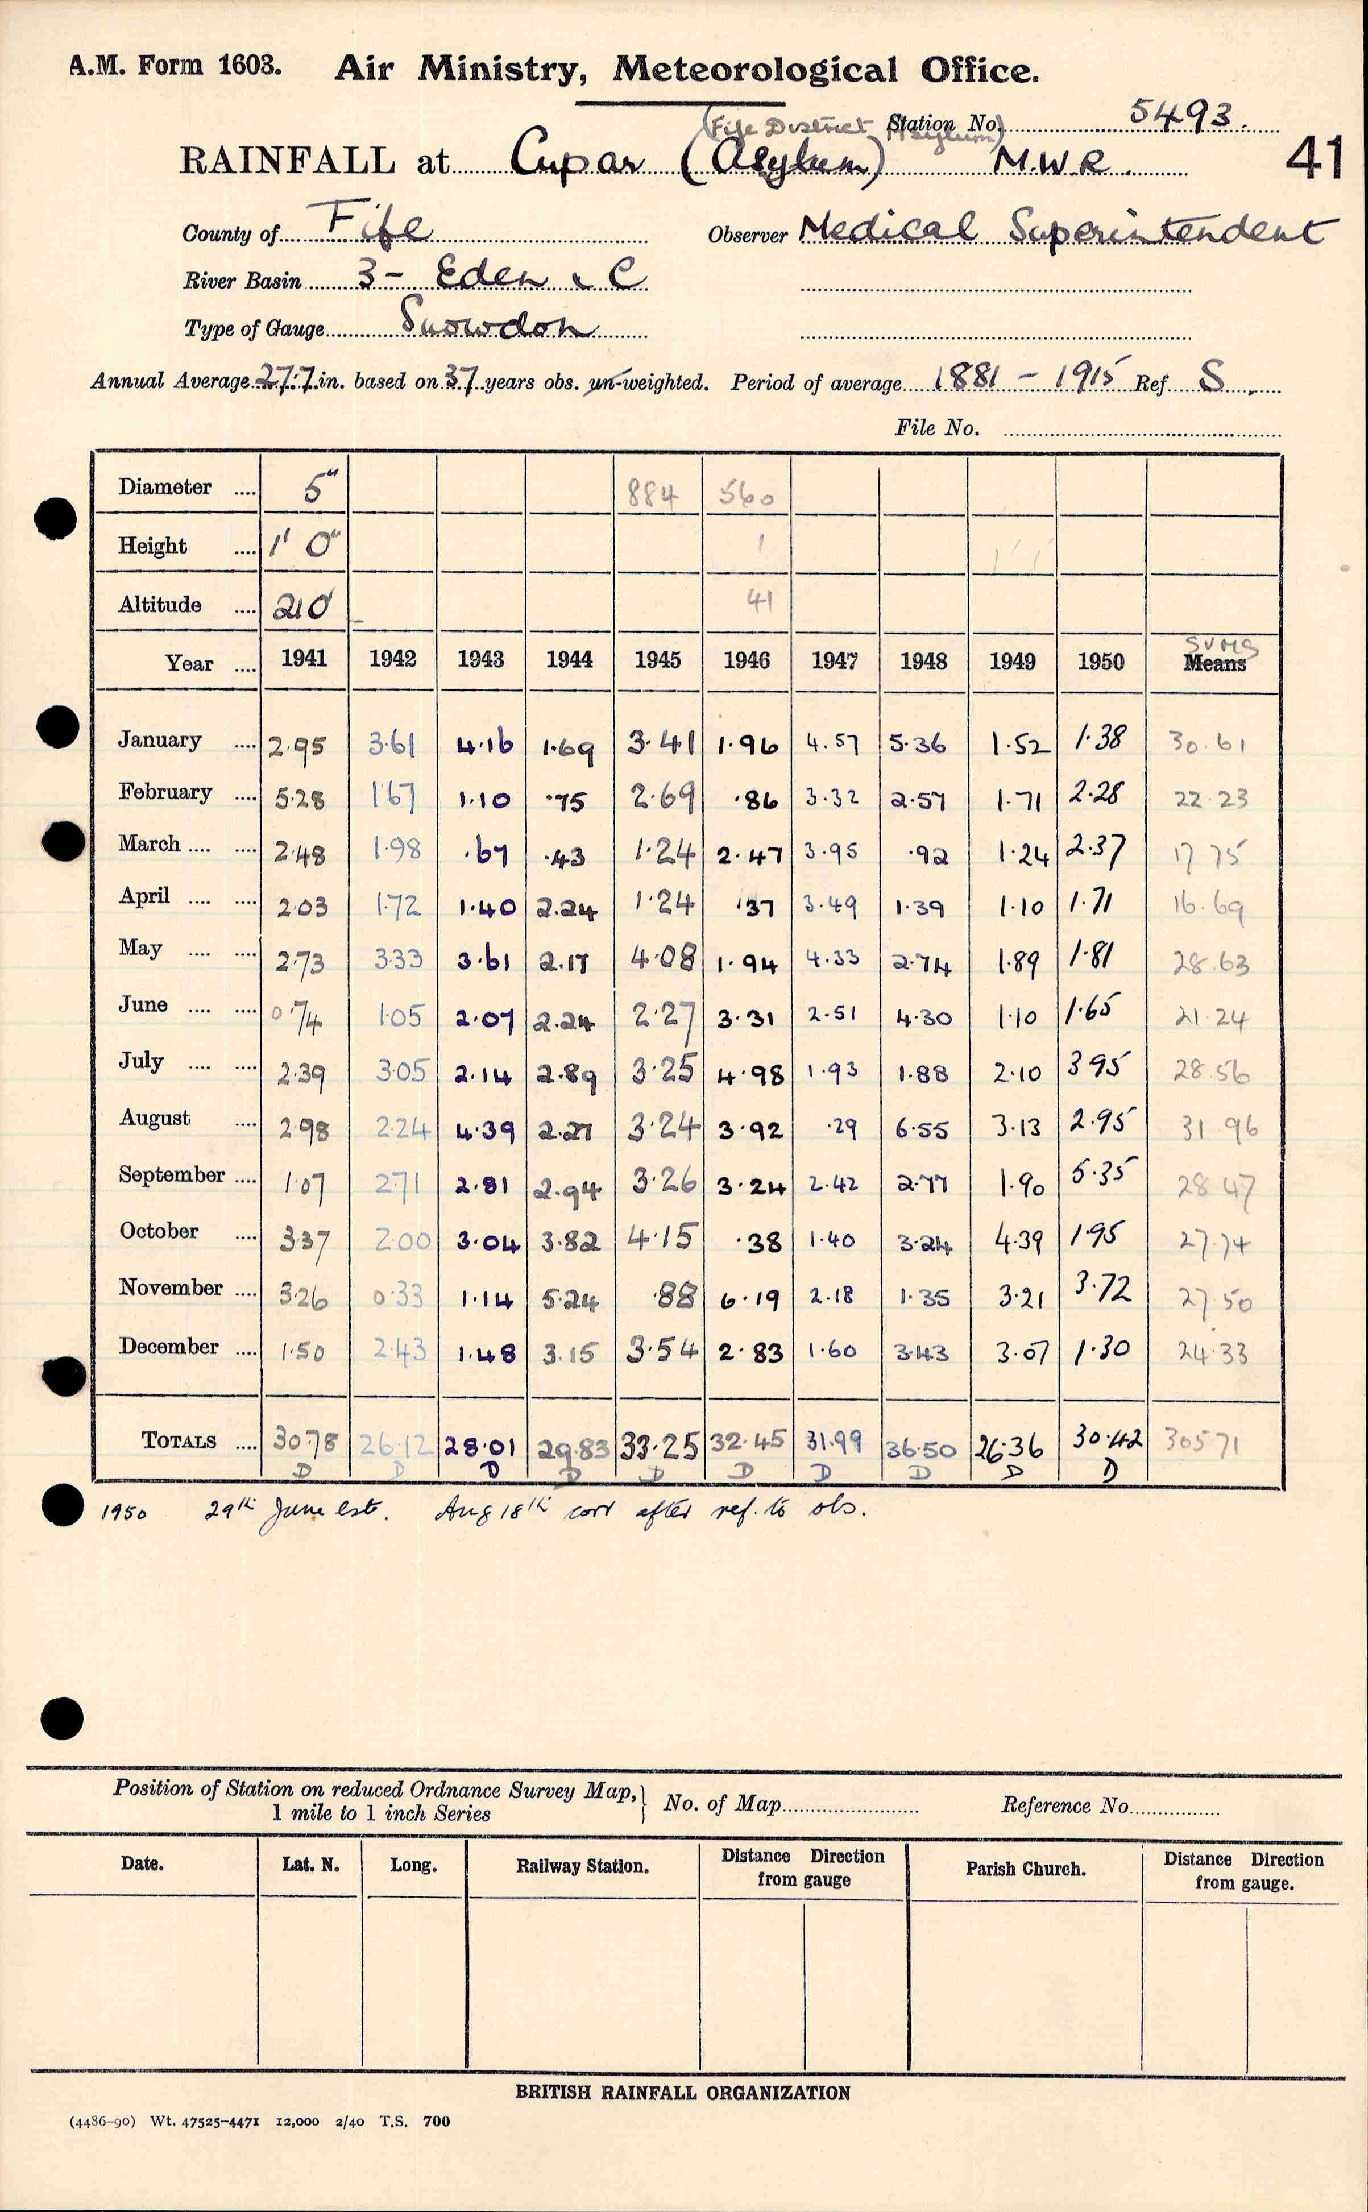 A.M. Form 1603. Air Ministry, Meteorological Office.
(Fife District Asylum) Station No. 5493.
RAINFALL at Cupar (Asylum) M.W.R. 41
County of Fife Observer Medical Superintendent
River Basin 3- Eden & C
Type of Gauge Snowdon
Annual Average 27.7 in. based on 37 years obs. un-weighted. Period of average 1881 - 1915 Ref S.
File No.
Diameter .... 5" 884 560
Height .... 1' 0" 1
Altitude .... 210 41
Year .... 1941 1942 1943 1944 1945 1946 1947 1948 1949 1950 SUMS Means
January .... 2.95 3.61 4.16 1.69 3.41 1.96 4.57 5.36 1.52 1.38 30.61
February .... 5.28 1.67 1.10 .75 2.69 .86 3.32 2.57 1.71 2.28 22.23
March .... .... 2.48 1.98 .67 .43 1.24 2.47 3.95 .92 1.24 2.37 17 75
April .... .... 2.03 1.72 1.40 2.24 1.24 .37 3.49 1.39 1.10 1.71 16.69
May .... .... 2.73 3.33 3.61 2.17 4.08 1.94 4.33 2.74 1.89 1.81 28.63
June .... .... 0.74 1.05 2.07 2.24 2.27 3.31 2.51 4.30 1.10 1.65 21.24
July .... .... 2.39 3.05 2.14 2.89 3.25 4.98 1.93 1.88 2.10 3.95 28.56
August .... 2.98 2.24 4.39 2.27 3.24 3.92 .29 6.55 3.13 2.95 31.96
September .... 1.07 2.71 2.81 2.94 3.26 3.24 2.42 2.77 1.90 5.35 28.47
October .... 3.37 2.00 3.04 3.82 4.15 .38 1.40 3.24 4.39 1.95 27.74
November .... 3.26 0.33 1.14 5.24 .88 6.19 2.18 1.35 3.21 3.72 27.50
December .... 1.50 2.43 1.48 3.15 3.54 2.83 1.60 3.43 3.07 1.30 24.33
TOTALS .... 30.78 26.12 28.01 29.83 33.25 32.45 31.99 36.50 26.36 30.42 305 71
D D D D D D D D D D
1950 29th June est. Aug 18th corr after ref. to obs.
Position of Station on reduced Ordnance Survey Map, } No. of Map Reference No.
1 mile to 1 inch Series
Date. Lat. N. Long. Railway Station. Distance Direction from gauge Parish Church. Distance Direction from gauge.
BRITISH RAINFALL ORGANIZATION
(4486-90) Wt. 47525-4471 12,000 2/40 T.S. 700